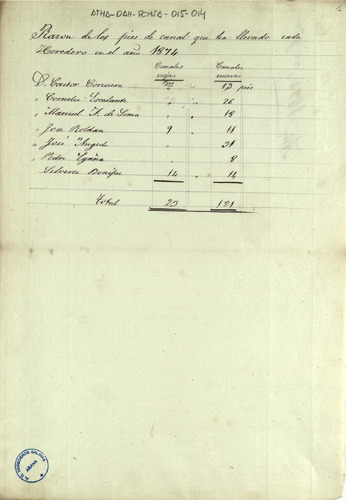 ATHA-DAH-FCHSA-015-014
Razon de los pies de canal que ha llevado cada
Heredero en el año 1874
Canales viejas Canales nuevas
D. Castor Corcuera 13 pies
" Cornelio Escalante " " 26
" Manuel F. de " " 18
" Roldan 9 " 11
" José Angulo " 31
" Pedro Egaña " 8
Silverio Bonifaz 14 " 14
Total 23 121
AÑANA